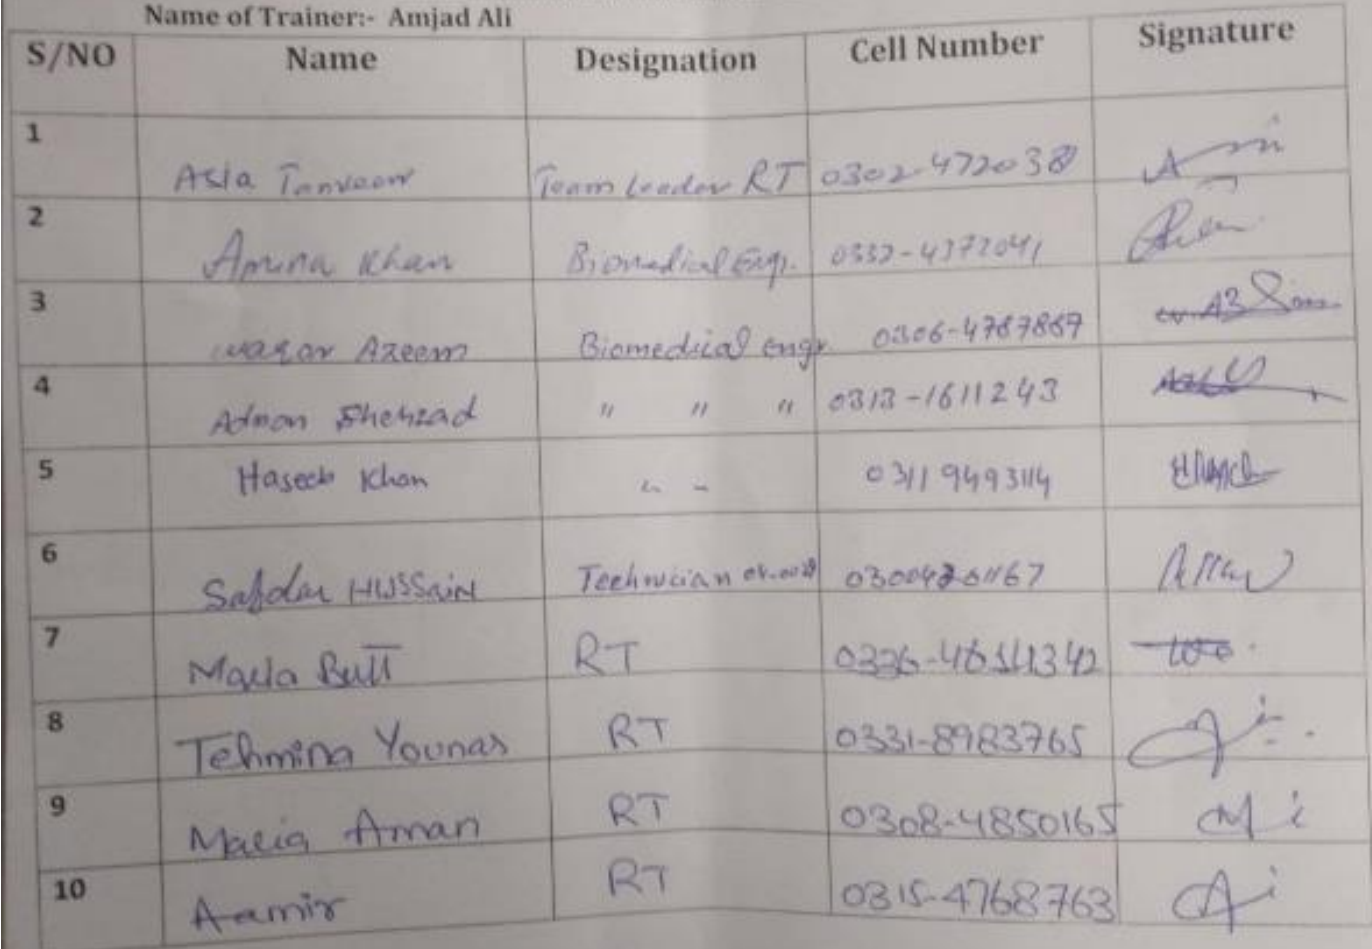 Name of Trainer:- Amjad Ali
S/NO Name Designation Cell Number Signature
1 Asia Tanveer Team Leader RT 0302-472038
2 Amina Khan Biomedical Engr. 0332-4372041
3 waqar Azeem Biomedical engr 0306-4767867
4 Adnan Shehzad " " " 0313-1611243
5 Haseeb Khan 03119493114
6 Safdar HUSSAIN Technician
7 Butt RT
8 Tehmina Younas RT 0331-8983765
9 Maria Aman RT 0308-4850165
10 Aamir RT 0315-4768763